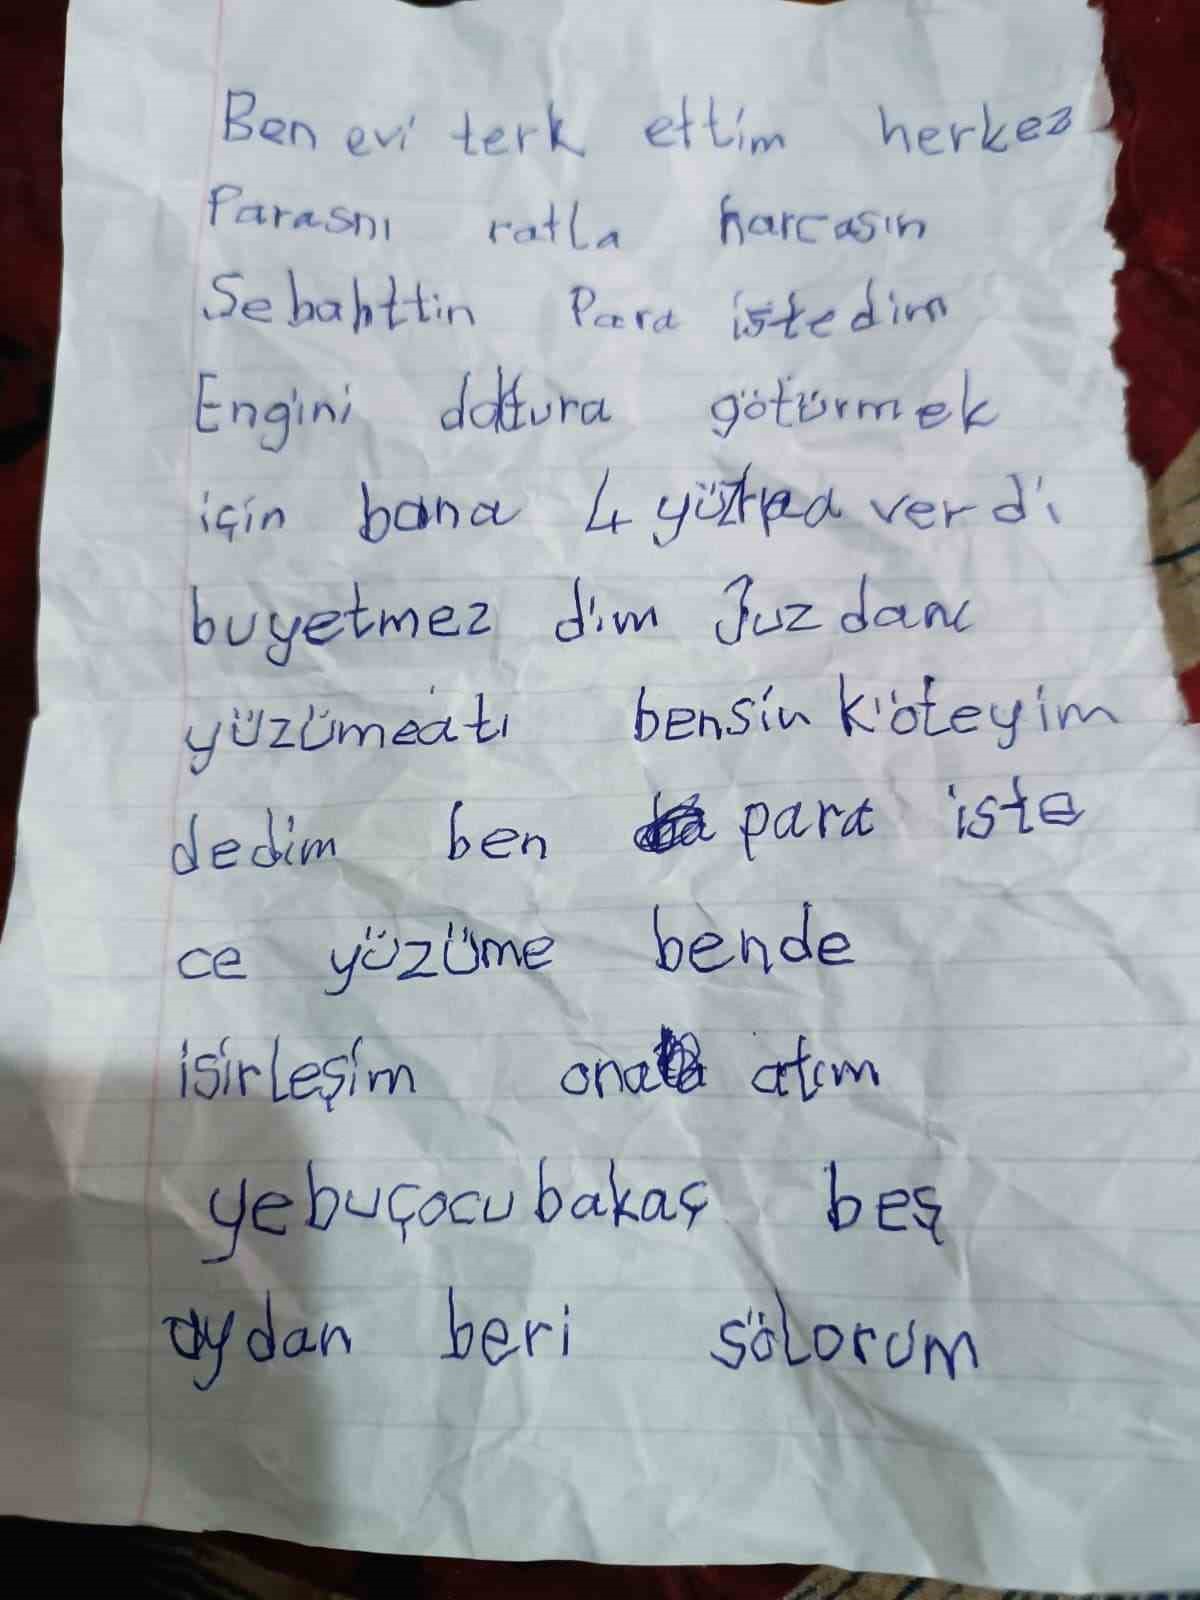 Ben evi terk ettim herkez
Parasnı ratla harcasın
Sebahttin Para istedim
Engini doktura götürmek
için bana 4 yüz verdi
buyetmez dim Juzdanı
yüzümeatı bensin köteyim
dedim ben para iste
ce yüzüme bende
isirleşim ona atım
yebuçocu bakaç beş
aydan beri sölorum